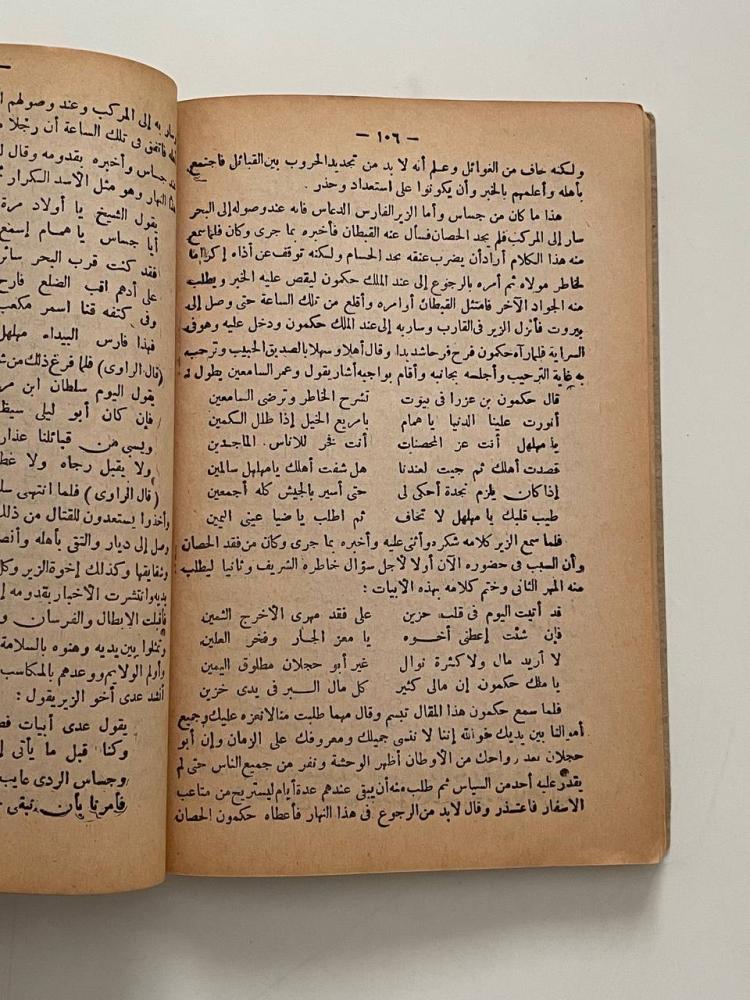 — ١٠٦ —
ولكنه خاف من الغوائل وعلم أنه لا بد من تجديد الحروب بين القبائل فاجتمع
بأهله وأعلمهم بالخبر وأن يكونوا على استعداد وحذر .
هذا ما كان من جساس وأما الزير الفارس الدعاس فانه عند وصوله إلى البحر
سار إلى المركب فلم يجد الحصان فسأل عنه القبطان فأخبره بما جرى وكان فلما سمع
منه هذا الكلام أراد أن يضرب عنقه بحد الحسام ولكنه توقف عن أذاه إكراما
لخاطر مولاه ثم أمره بالرجوع إلى عند الملك حكمون ليقص عليه الخبر ويطلب
منه الجواد الآخر فامتثل القبطان أوامره وأقلع من تلك الساعة حتى وصل إلى
بيروت فأنزل الزير فى القارب وسار به إلى عند الملك حكمون ودخل عليه وهو فى
السراية فلما رآه حكمون فرح فرحا شديدا وقال أهلا وسهلا بالصديق الحبيب وترحب
به غاية الترحيب وأجلسه بجانبه وأقام بواجبه أشار يقول وعمر السامعين يطول :
قال حكمون بن عزرا فى بيوت تشرح الخاطر وترضى السامعين
أنورت علينا الدنيا يا همام يا مريع الخيل إذا طلل الكمين
يا مهلهل أنت عز المحصنات أنت فخر للاناس الماجدين
قصدت أهلك ثم جيت لعندنا هل شفت أهلك يا مهلهل سالمين
إذا كان يلزم نجدة أحكى لى حتى أسير بالجيش كله أجمعين
طيب قلبك يا مهلهل لا تخاف ثم اطلب يا ضيا عينى اليمين
فلما سمع الزير كلامه شكره وأثنى عليه وأخبره بما جرى وكان من فقد الحصان
وأن السبب فى حضوره الآن أولا لأجل سؤال خاطره الشريف وثانيا ليطلب
منه المهر الثانى وختم كلامه بهذه الابيات :
قد أتيت اليوم فى قلب حزين على فقد مهرى الأخرج الثمين
فإن شئت إعطنى أخوه يا معز الجار وفخر العلين
لا أريد مال ولا كثرة نوال غير أبو حجلان مطلوق اليمين
يا ملك حكمون إن مالى كثير كل مال السبر فى يدى خزين
فلما سمع حكمون هذا المقال تبسم وقال مهما طلبت منا لا نعزه عليك وجميع
أموالنا بين يديك خوالله إننا لا ننسى جميلك ومعروفك على الزمان وإن أبو
حجلان بعد رواحك من الأوطان أظهر الوحشة ونفر من جميع الناس حتى لم
يقدر عليه أحد من السياس ثم طلب منه أن يبقى عندهم عدة أيام ليستريح من متاعب
الاسفار فاعتذر وقال لابد من الرجوع فى هذا النهار فأعطاه حكمون الحصان
وسار به إلى المركب وعند وصولهم
فاتفق فى تلك الساعة أن رجلا
جساس وأخبره بقدومه وقال
النهار وهو مثل الأسد الكرار
يقول الشيخ يا أولاد مرة
أيا جساس يا همام إسمع
فقد كنت قرب البحر سائر
على أدهم اقب الضلع فارح
وفى كتفه قنا اسمر مكعب
فهذا فارس البيداء مهلهل
(قال الراوى) فلما فرغ ذلك من
يقول اليوم سلطان ابن مرة
فإن كان أبو ليلى
ويسبى من قبائلنا عذارى
ولا يقبل رجاه ولا
(قال الراوى) فلما انتهى
وأخذوا يستعدون للقتال من ذلك
وصل إلى ديار والتقى بأهله
وكذلك إخوة الزير
يديه وانتشرت الأخبار بقدومه
فأقبلت الابطال والفرسان
وتمثلوا بين يديه وهنوه بالسلامة
وأولم الولايم ووعدهم بالمكاسب
أنشد عدى أخو الزير يقول :
يقول عدى أبيات
وكنا قبل ما يأتى
وجساس الردى عايب
فأمرنا بأن نبقى